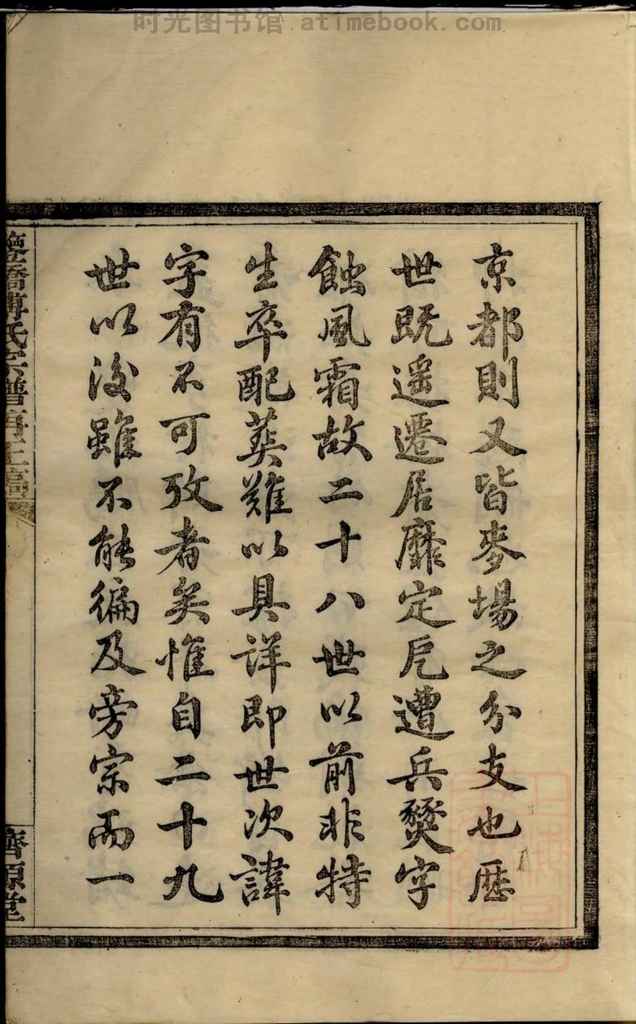 时光图书馆 atimebook.com
京都則又皆麥場之分支也歷
世既遥遷居靡定戹遭兵燹字
蝕風霜故二十八世以前非特
生卒配葬難以具詳即世次諱
字有不可攷者矣惟自二十九
世以後雖不能徧及旁宗而一
氏宗譜
濟源堂